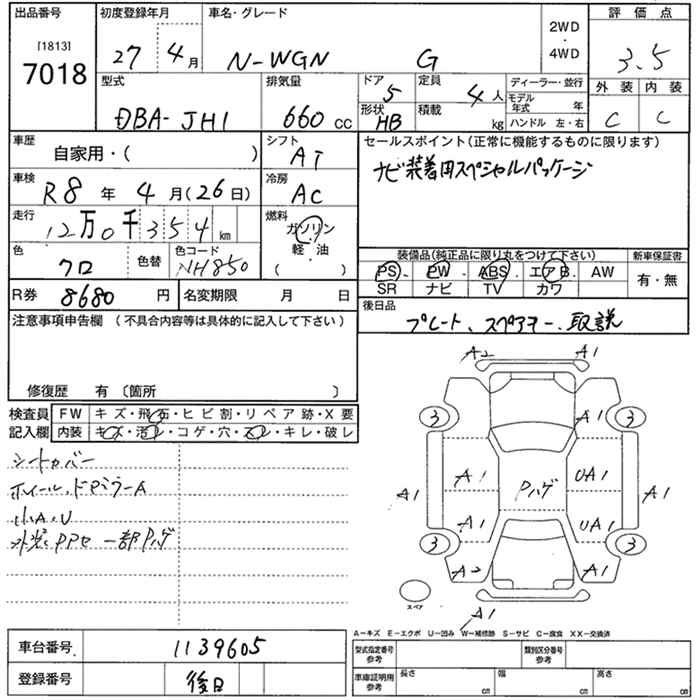 出品番号 初度登録年月 車名・グレード 2WD・4WD 評価点
[1813]
7018 27年 4月 N-WGN G 3.5
型式 排気量 ドア 5 定員 4人 ディーラー・並行 外装 内装
DBA-JH1 660cc 形状 HB 積載 kg モデル年式 年 C C
ハンドル 左・右
車歴 シフト セールスポイント(正常に機能するものに限ります)
自家用・( ) AT ナビ装着用スペシャルパッケージ
車検 冷房
R8年 4月(26日) AC
走行 燃料
12万0千354km ガソリン
軽・油
( )
色 色替 色コード 装備品(純正品に限り丸をつけて下さい) 新車保証書
クロ NH850 PS PW ABS エアB AW 有・無
SR ナビ TV カワ
R券 8680円 名変期限 月 日 後日品
注意事項申告欄 (不具合内容等は具体的に記入して下さい) プレート、スペアキー、取説
修復歴 有 〔箇所 〕
検査員 FW キズ・飛石・ヒビ割・リペア跡・X要
記入欄 内装 キズ・汚レ・コゲ・穴・スレ・キレ・破レ
シートカバー
ホイール、ドアミラーA
小A・U
外装PPセ 一部Pハゲ
A2 A1
3 A1 3
A1 A1 Pハゲ UA1 A1
A1 UA1
3 3
A2 A1
スペア A1
A-キズ E-エクボ U-凹み W-補修跡 S-サビ C-腐食 XX-交換済
車台番号 1139605 型式指定番号 参考 類別区分番号 参考
登録番号 後日 車庫証明用 参考 長さ cm 幅 cm 高さ cm